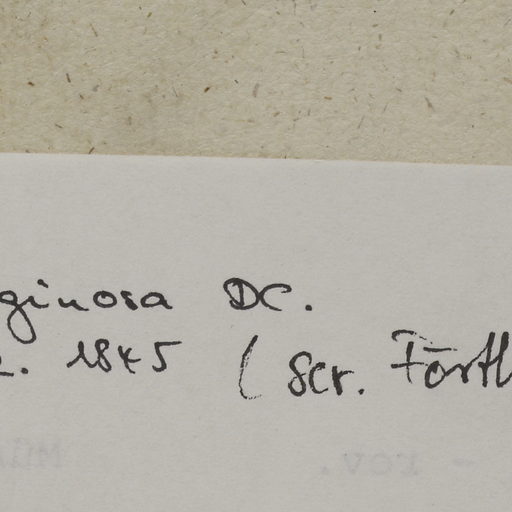 ginosa DC.
. 1845 ( Scr. Förth